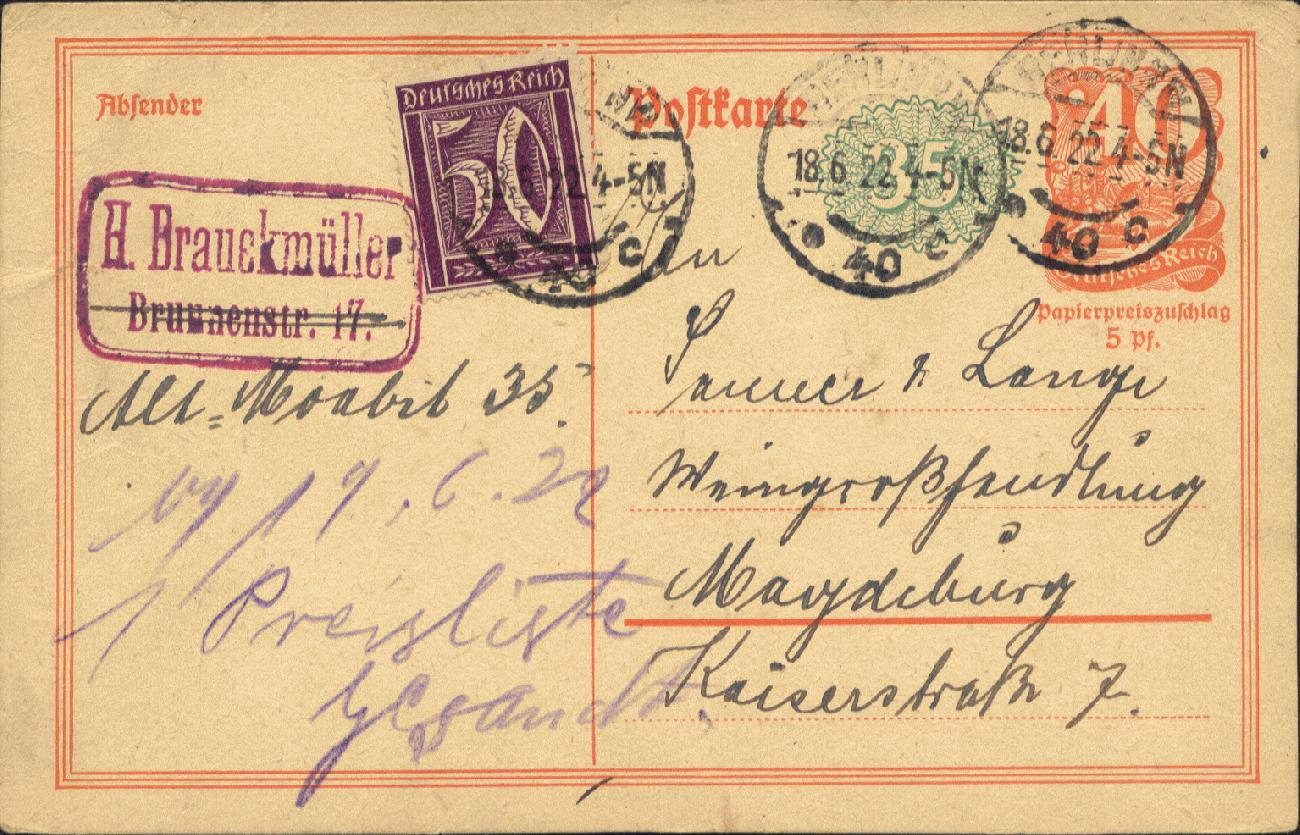 Absender
Postkarte
Deutsches Reich
50
35
40
Deutsches Reich
Papierpreiszuschlag
5 Pf.
18.6.22 4-5N
40 c
18.6.22 4-5N
40 c
18.6.22 4-5N
40 c
H. Brauckmüller
Brunnenstr. 17.
Alt-Moabit 35.
19.6.22
1 Preisliste
gesandt.
An
& Lange
Weingroßhandlung
Magdeburg
Kaiserstraße 7.